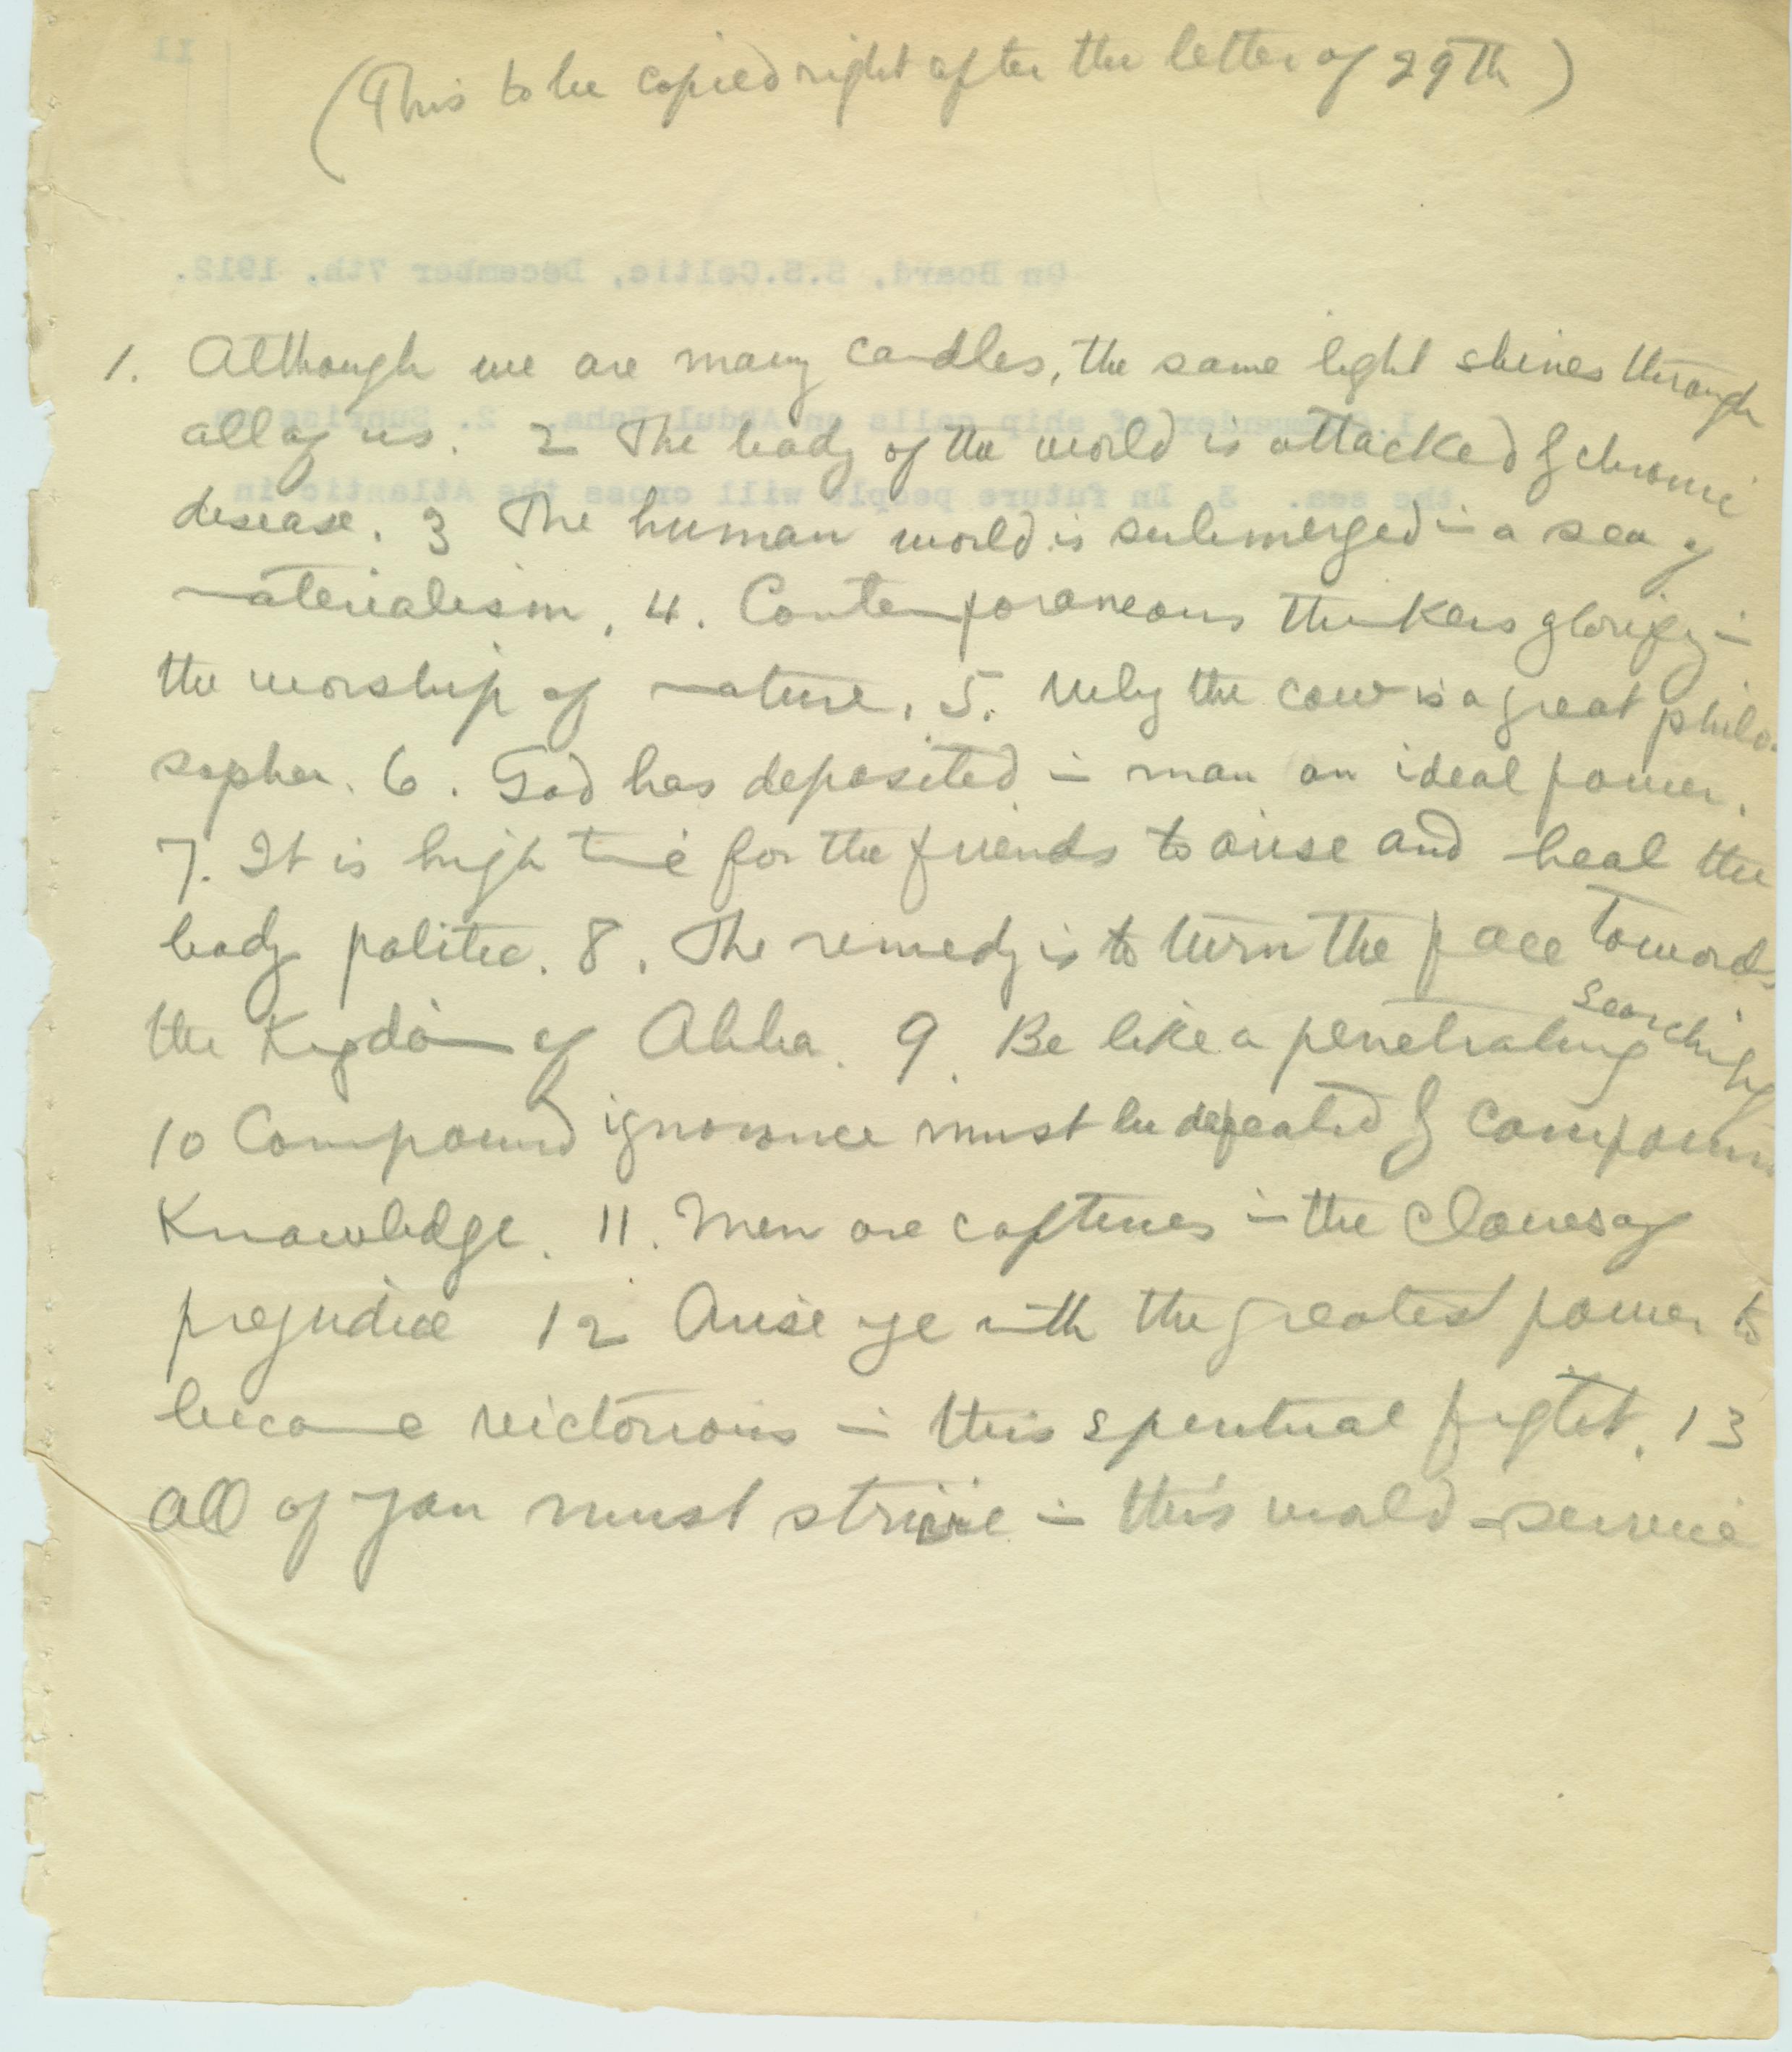 (This to be copied right after the letter of 29th)
1. Although we are many candles, the same light shines through
all of us. 2 The body of the world is attacked by chronic
disease. 3 The human world is submerged in a sea of
materialism. 4. Contemporaneous thinkers glorify in
the worship of nature. 5. Why the cow is a great philo-
sopher. 6. God has deposited in man an ideal power.
7. It is high time for the friends to arise and heal the
body politic. 8. The remedy is to turn the face towards
the Kingdom of Abha. 9. Be like a penetrating searching
10 Compound ignorance must be defeated by compound
Knowledge. 11. Men are captives in the claws of
prejudice 12 Arise ye with the greatest power to
become victorious in this spiritual fight. 13
All of you must strive in this world-service